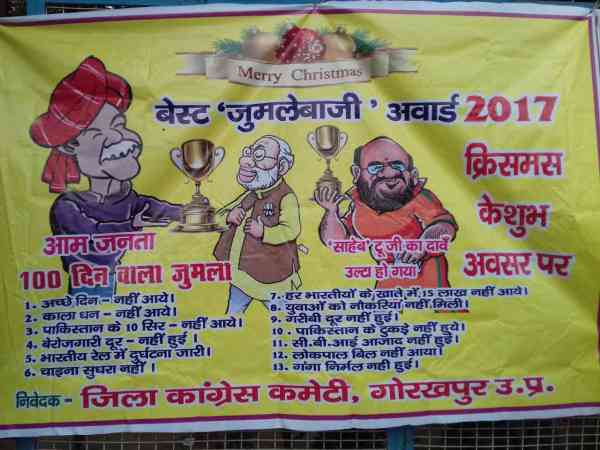 Merry Christmas
बेस्ट 'जुमलेबाजी' अवार्ड 2017
क्रिसमस
के शुभ
अवसर पर
आम जनता
100 दिन वाला जुमला
1. अच्छे दिन - नहीं आये।
2. काला धन - नहीं आये।
3. पाकिस्तान के 10 सिर - नहीं आये।
4. बेरोजगारी दूर - नहीं हुई ।
5. भारतीय रेल में दुर्घटना जारी।
6. चाइना सुधरा नहीं ।
'साहेब' टू जी का दावँ
उल्टा हो गया
7. हर भारतीयों के खाते में 15 लाख नहीं आये।
8. युवाओं को नौकरियां नहीं मिली।
9. गरीबी दूर नहीं हुई।
10. पाकिस्तान के टुकड़े नहीं हुये।
11. सी.बी.आई आजाद नहीं हुई।
12. लोकपाल बिल नहीं आया।
13. गंगा निर्मल नही हुई।
निवेदक - जिला कांग्रेस कमेटी, गोरखपुर उ.प्र.